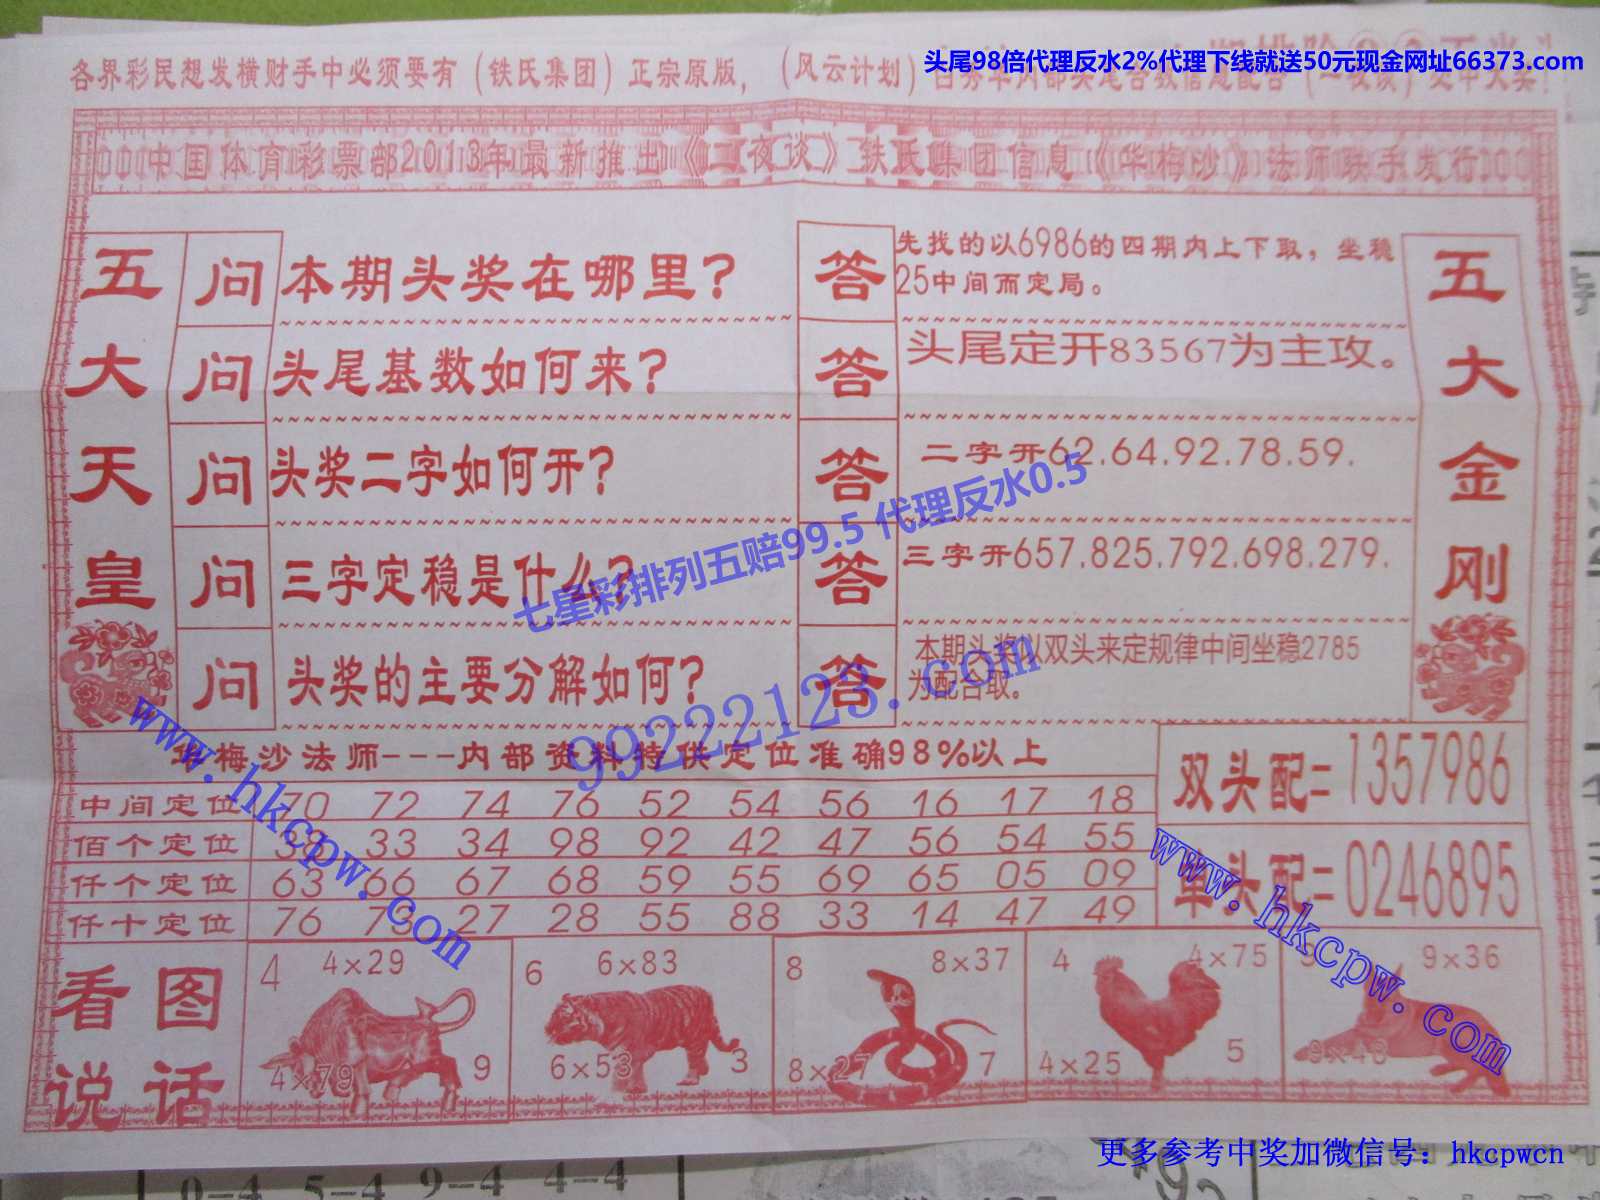 头尾98倍代理反水2%代理下线就送50元现金网址66373.com
各界彩民想发横财手中必须要有（铁氏集团）正宗原版，（风云计划）
中国体育彩票部2013年最新推出《二夜谈》铁氏集团信息《华梅沙》法师联手发行
五大天皇
问 本期头奖在哪里？
答 先找的以6986的四期内上下取，坐稳
25中间而定局。
问 头尾基数如何来？
答 头尾定开83567为主攻。
问 头奖二字如何开？
答 二字开62.64.92.78.59.
问 三字定稳是什么？
答 三字开657.825.792.698.279.
问 头奖的主要分解如何？
答 本期头奖以双头来定规律中间坐稳2785
为配合取。
五大金刚
七星彩排列五赔99.5 代理反水0.5
99222123.com
www.hkcpw.com
华梅沙法师---内部资料特供定位准确98%以上
中间定位 70 72 74 76 52 54 56 16 17 18
佰个定位 33 34 98 92 42 47 56 54 55
仟个定位 63 66 67 68 59 55 69 65 05 09
仟十定位 76 27 28 55 88 33 14 47 49
双头配=1357986
单头配=0246895
www.hkcpw.com
看图说话
4 4×29
4×79 9
6 6×83
6×53 3
8 8×37
8×27 7
4 4×75
4×25 5
9×36
9×48
更多参考中奖加微信号：hkcpwcn
0-4 5-4 9-4 4-4